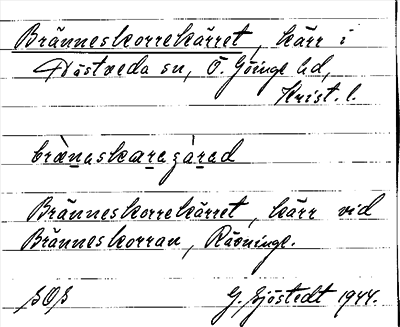 Bränneskorrekärret, kärr i
Hästveda sn, Ö. Göinge hd,
Krist. l.
Bränneskorrekärret, kärr vid
Bränneskorran, Rävninge.
SOS G. Sjöstedt 1944.